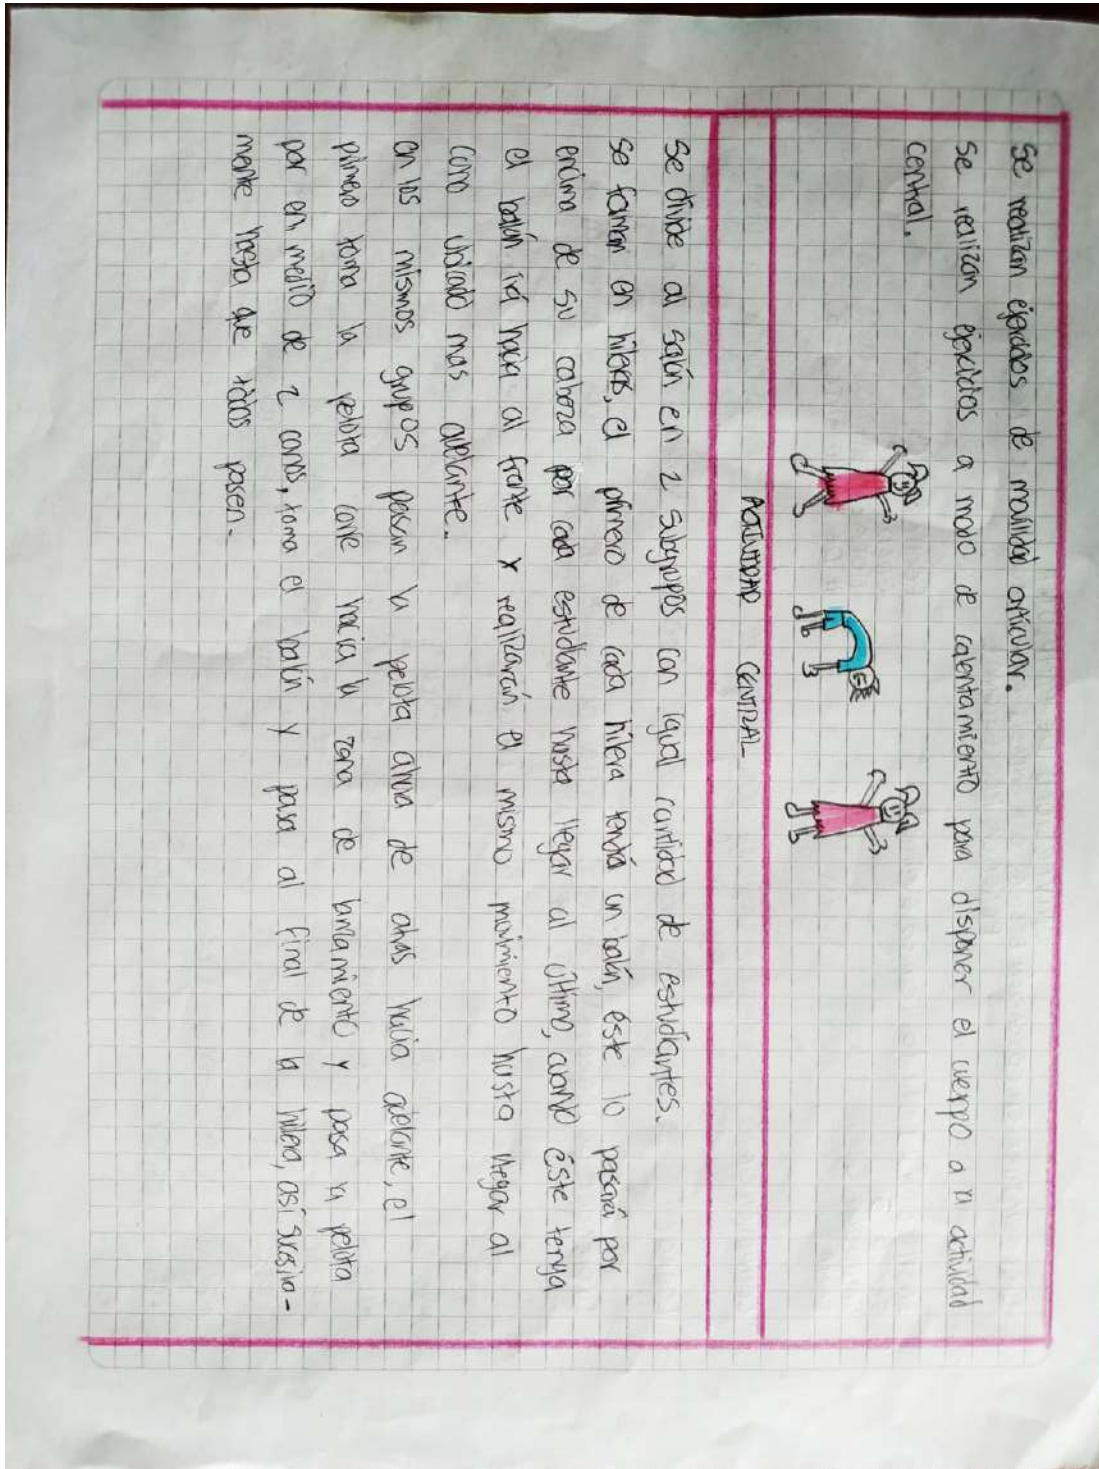 Se realizan ejercicios de movilidad articular.
Se realizan ejercicios a modo de calentamiento para disponer el cuerpo a la actividad
central.
ACTIVIDAD CENTRAL
Se divide al salón en 2 subgrupos con igual cantidad de estudiantes.
Se forman en hileras, el primero de cada hilera tendrá un balón, éste lo pasará por
encima de su cabeza por cada estudiante hasta llegar al último, cuando éste tenga
el balón irá hacia al frente y realizarán el mismo movimiento hasta llegar al
cono ubicado mas adelante.
en los mismos grupos pasan la pelota ahora de atras hacia adelante, el
primero toma la pelota corre hacia la zona de lanzamiento y pasa la pelota
por en medio de 2 conos, toma el balón y pasa al final de la hilera, así sucesiva-
mente hasta que todos pasen.